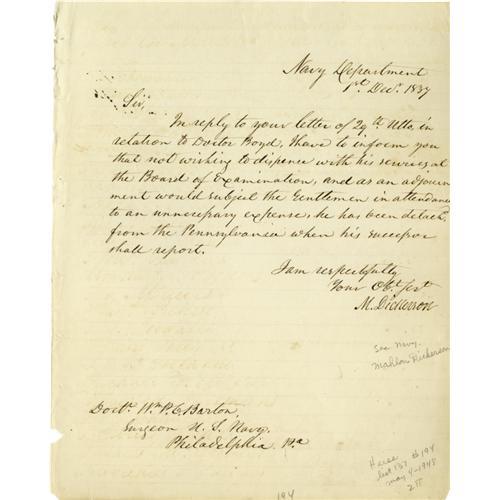 Navy Department
1st Decr. 1837
Sir,
In reply to your letter of 29th Ulto. in
relation to Doctor Boyd, I have to inform you
that not wishing to dispence with his services at
the Board of Examination, and as an adjourn
ment would subject the Gentlemen in attendance
to an unnecessary expense, he has been detachd.
from the Pennsylvania when his successor
shall report.
I am respectfully
Your Obt. Servt
M. Dickerson
Sec Navy.
Mahlon Dickerson
Doctr. Wm. P. C. Barton,
Surgeon U. S. Navy,
Philadelphia Pa
list 187 194
May 4-1948
194